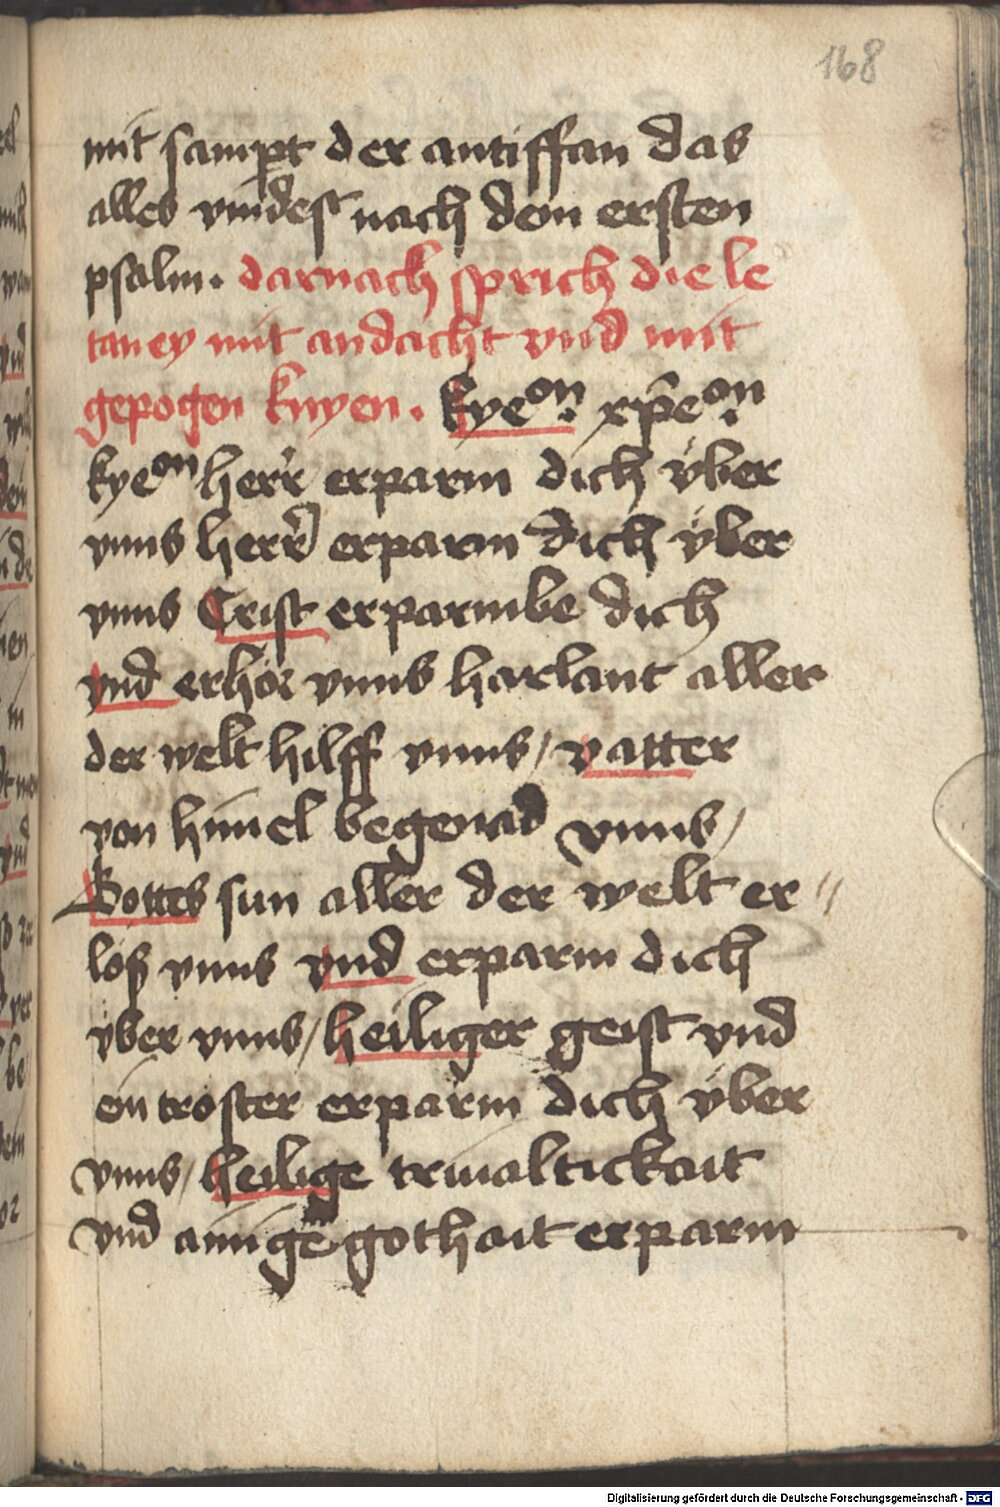 168
mit sampt der antiffan das
alles vindest nach dem ersten
psalm. darnach sprich die le
taney mit andacht vnd mit
gepogen knyen. kyeon. xp̄eon.
kyeon herr erparm dich v̈ber
vnns herr erparm dich v̈ber
vnns Crist erparmbe dich
vnd erhör vnns harlant aller
der welt hilff vnns / vatter
von himel begenad vnns /
Gottes sun aller der welt er〃
lös vnns vnd erparm dich
v̈ber vnns / heiliger geist vnd
ein troster erparm dich v̈ber
vnns / heilige triualtickait
vnd ainige gothait erparm
Digitalisierung gefördert durch die Deutsche Forschungsgemeinschaft - DFG